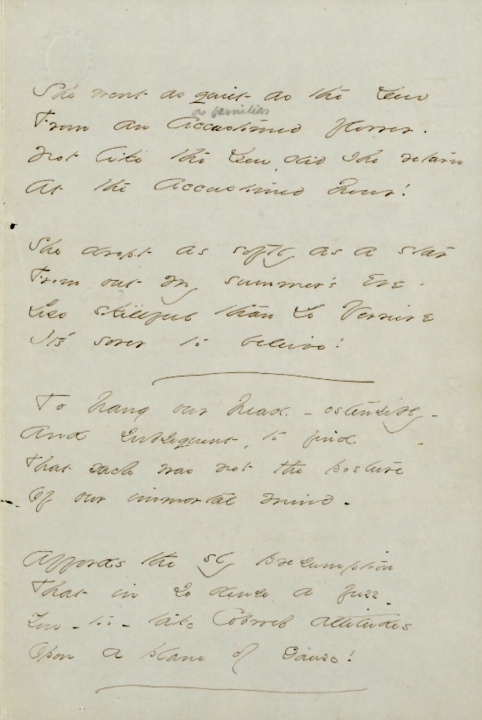 She went as quiet as the Dew
a familiar
From an Accustomed flower.
Not like the Dew, did she return
At the Accustomed hour!
She dropt as softly as a star
From out my summer's Eve -
Less skillful than Le Verriere
It's sorer to believe!
To hang our head - ostensibly -
And subsequent, to find
That such was not the posture
Of our immortal mind -
Affords the sly presumption
That in so dense a fuzz -
You - too - take Cobweb attitudes
Upon a plane of Gauze!